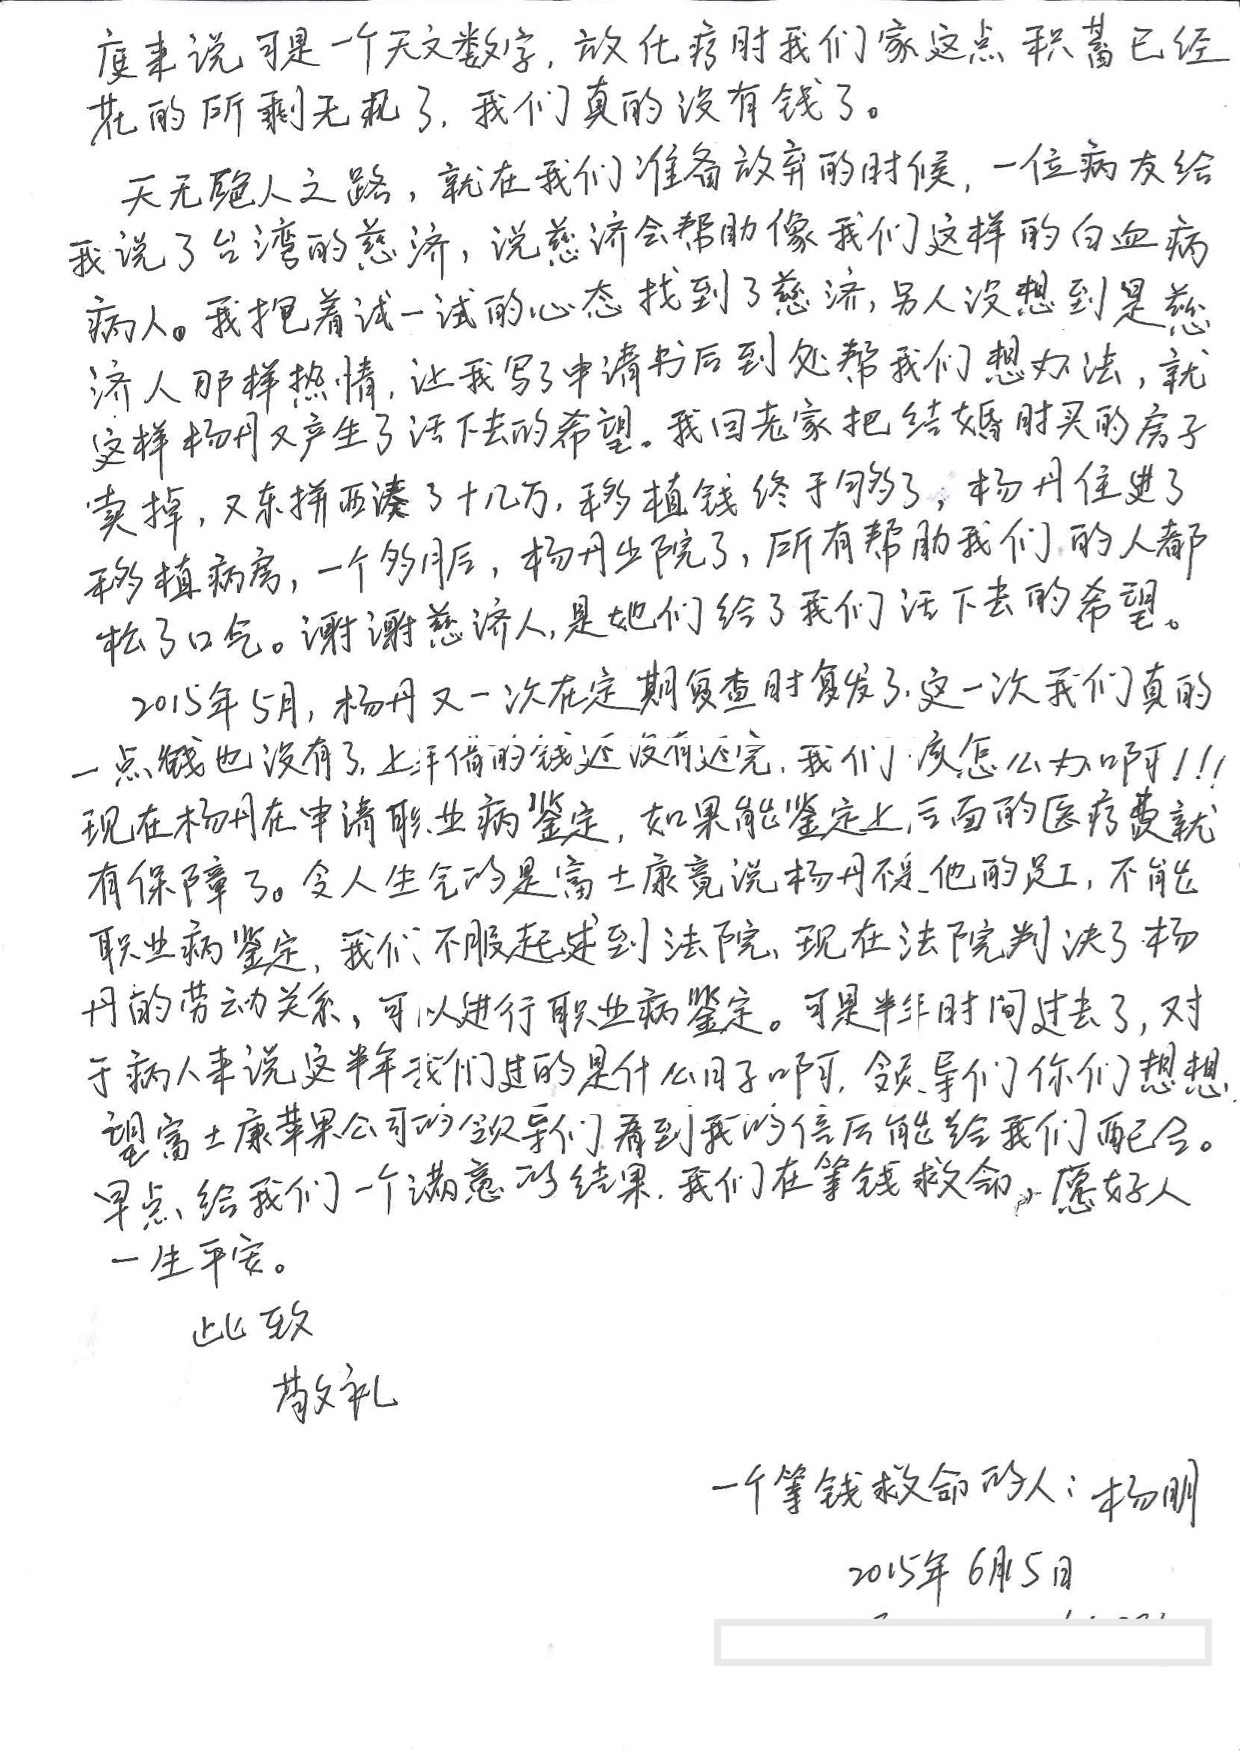 度来说可是一个天文数字，放化疗时我们家这点积蓄已经
花的所剩无几了，我们真的没有钱了。
天无绝人之路，就在我们准备放弃的时候，一位病友给
我说了台湾的慈济，说慈济会帮助像我们这样的白血病
病人。我抱着试一试的心态找到了慈济，另人没想到是慈
济人那样热情，让我写了申请书后到处帮我们想办法，就
这样杨丹又产生了活下去的希望。我回老家把结婚时买的房子
卖掉，又东拼西凑了十几万，移植钱终于够了，杨丹住进了
移植病房，一个多月后，杨丹出院了，所有帮助我们的人都
松了口气。谢谢慈济人，是她们给了我们活下去的希望。
2015年5月，杨丹又一次在定期复查时复发了，这一次我们真的
一点钱也没有了，上半年借的钱还没有还完，我们该怎么办啊！！！
现在杨丹在申请职业病鉴定，如果能鉴定上，后面的医疗费就
有保障了。令人生气的是富士康竟说杨丹不是他的员工，不能
职业病鉴定，我们不服起述到法院，现在法院判决了杨
丹的劳动关系，可以进行职业病鉴定。可是半年时间过去了，对
于病人来说这半年我们过的是什么日子啊，领导们你们想想，
望富士康苹果公司的领导们看到我的信后能给我们配合。
早点给我们一个满意的结果，我们在等钱救命，愿好人
一生平安。
此致
敬礼
一个等钱救命的人：杨明
2015年6月5日